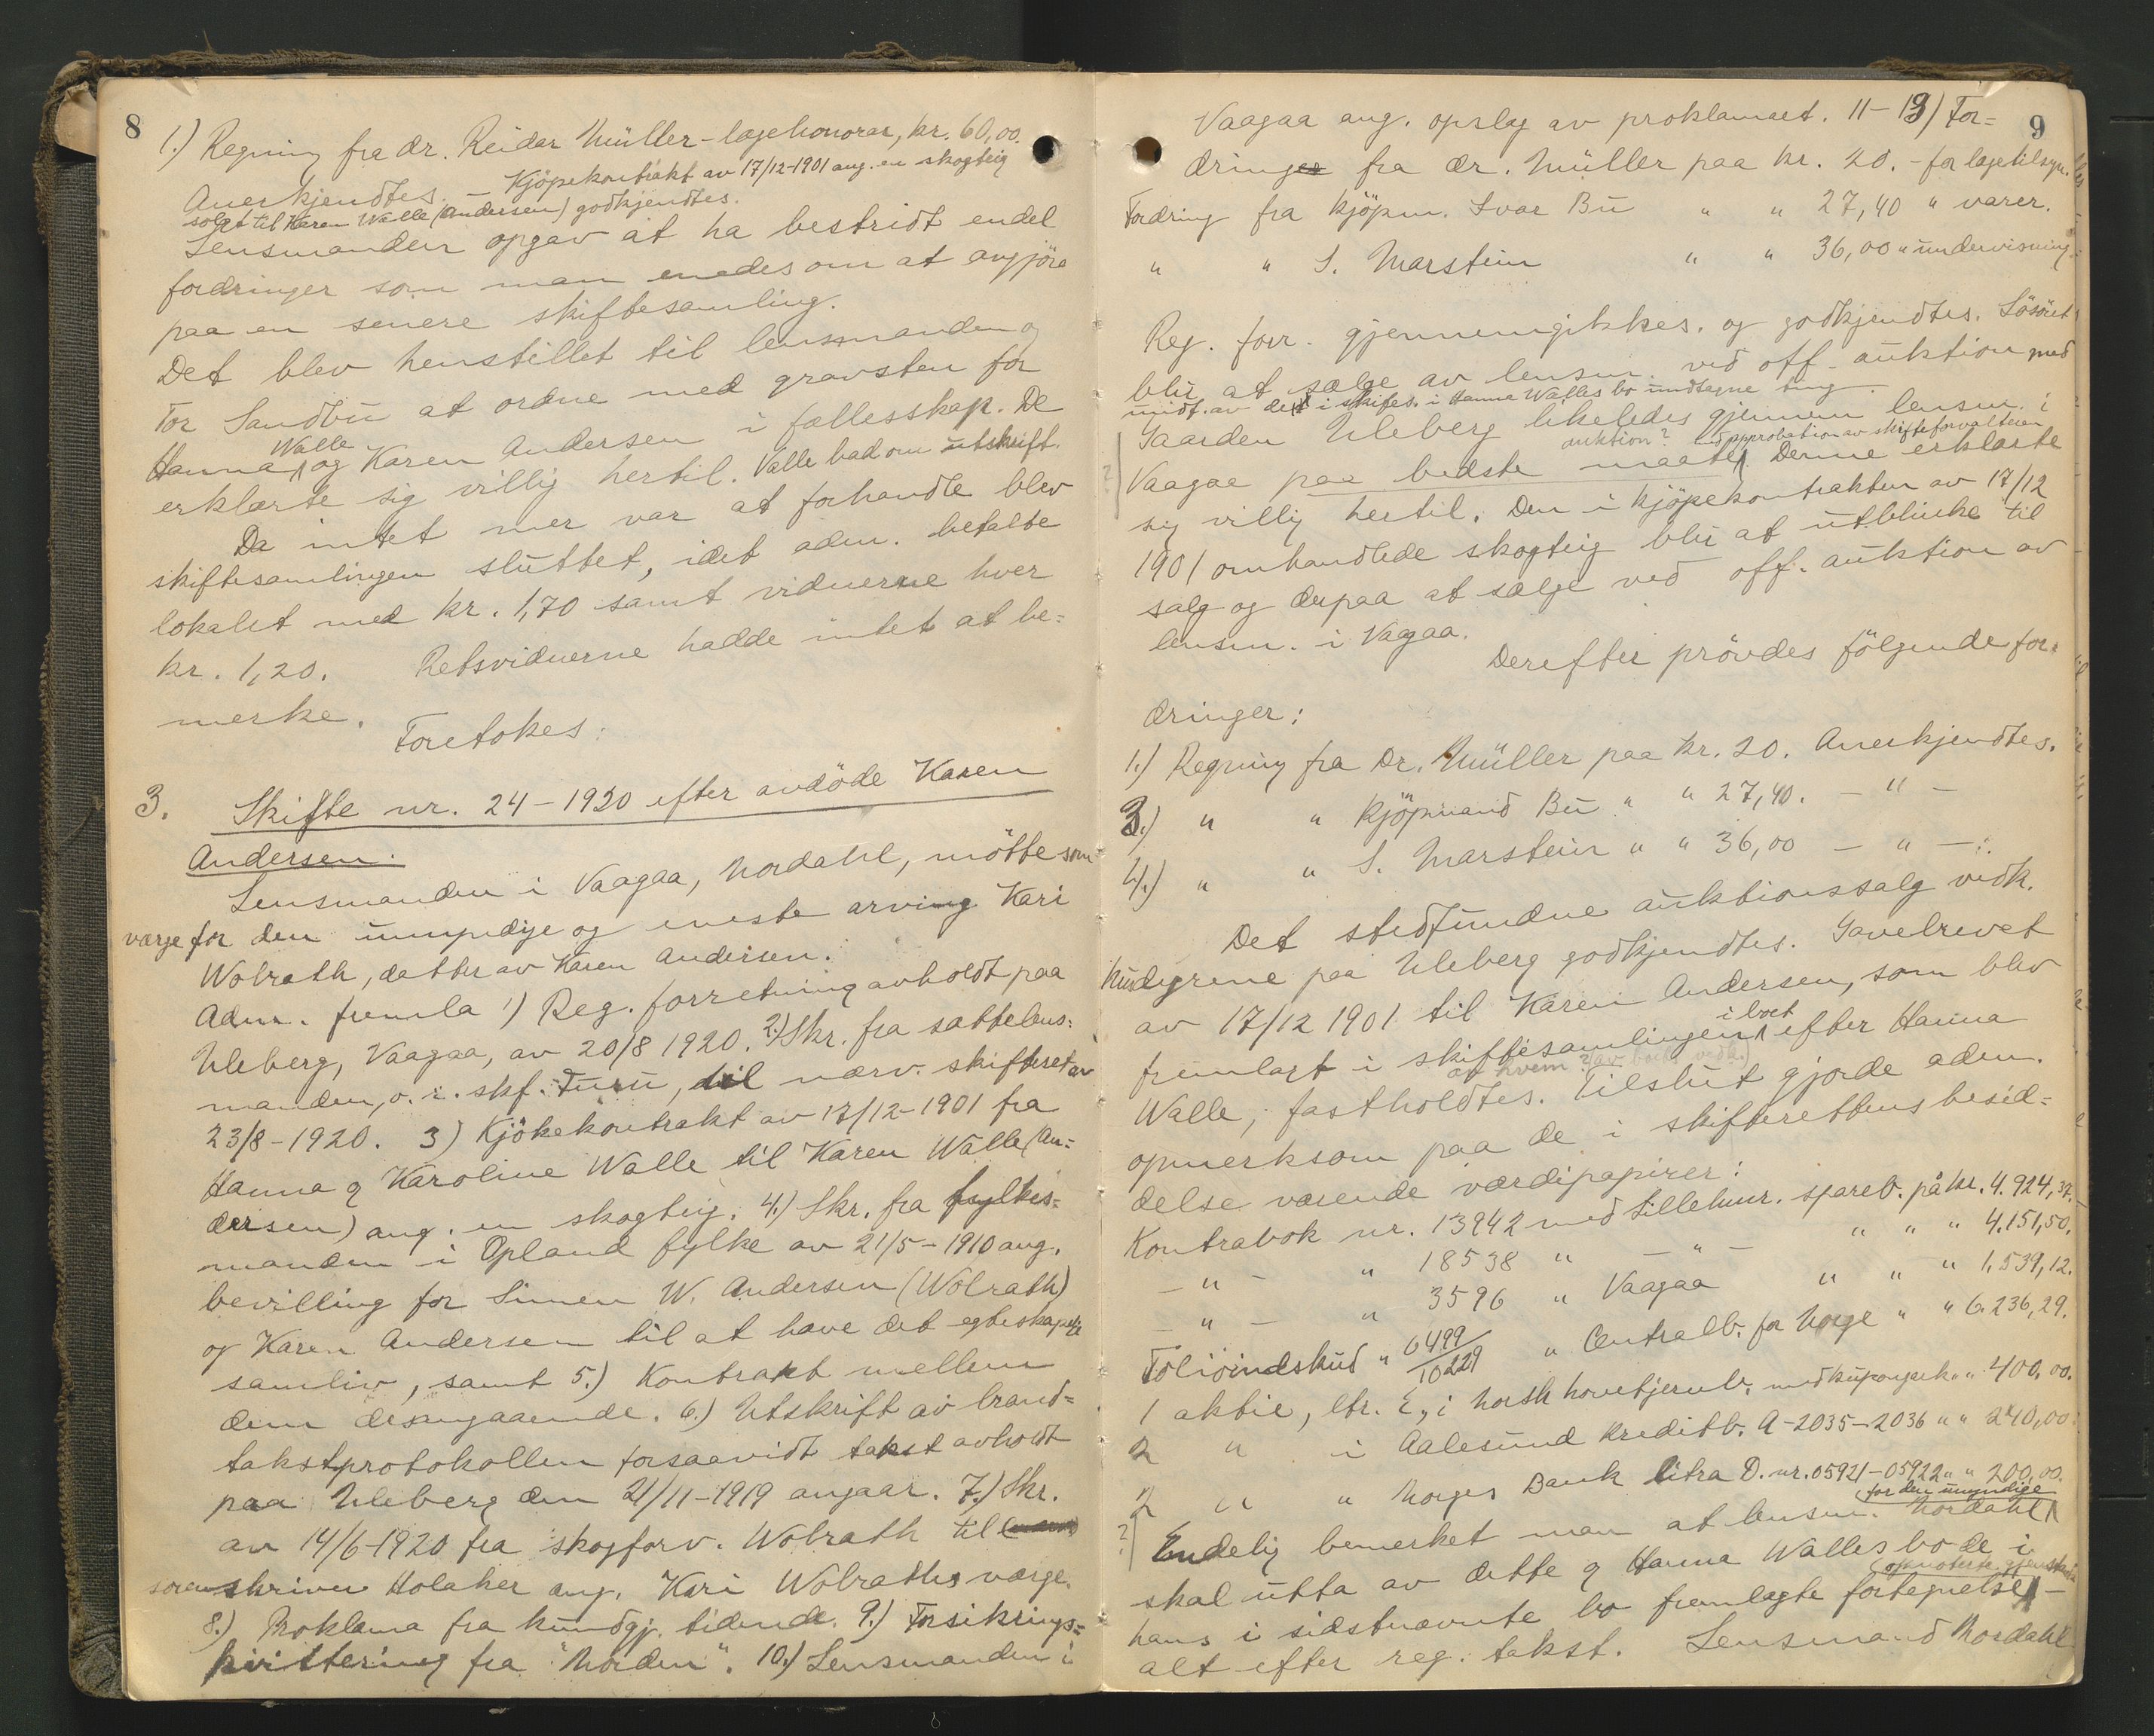 8
1.) Regning fra dr. Reidar Müller - lægehonorar, kr. 60,00.
Anerkjendtes. - Kjöpekontrakt av 17/12-1901 ang. en skogteig
solgt til Karen Walle (Andersen) godkjendtes.
Lensmanden opgav at ha bestridt endel
fordringer som man enedes om at avgjöre
paa en senere skiftesamling.
Det blev henstillet til lensmanden og
Tor Sandbu at ordne med gravsten for
Hanna Walle og Karen Andersen i fællesskap. De
erklærte sig villig hertil. Valle bad om utskrift.
Da intet mer var at forhandle blev
skiftesamlingen sluttet, idet adm. betalte
lokalet med kr. 1,70 samt vidnerne hver
kr. 1,20. Retsvidnerne hadde intet at be=
merke.
Foretokes:
3. Skifte nr. 24-1920 efter avdöde Karen
Andersen.
Lensmanden i Vaagaa, Nordahl, mötte som
værge for den umyndige og eneste arving Kari
Wolrath, datter av Karen Andersen.
Adm. fremla 1) Reg. forretning avholdt paa
Uleberg, Vaagaa, av 20/8 1920. 2.) Skr. fra sættelens=
manden, o.r. skf. Furu, til nærv. skifteret av
23/8-1920. 3) Kjökekontrakt av 17/12-1901 fra
Hanna og Karoline Walle til Karen Walle (An=
dersen) ang. en skogteig. 4.) Skr. fra fylkes=
manden i Opland fylke av 21/5-1910 ang.
bevilling for Simen W. Andersen (Wolrath)
og Karen Andersen til at hæve det egteskapelige
samliv, samt 5.) Kontrakt mellem
dem desangaaende. 6.) Utskrift av brand=
takstprotokollen forsaavidt takst avholdt
paa Uleberg den 21/11-1919 angaar. 7.) Skr.
av 14/6-1920 fra skogforv. Wolrath til
sorenskriver Holaker ang. Kari Wolraths værge.
8.) Proklama fra kundgj. tidende. 9.) Forsikrings=
kvittering fra "Norden". 10.) Lensmanden i
9
Vaagaa ang. opslag av proklamaet. 11-13) For=
dringer fra dr. Müller paa kr. 20.- for lægetilsyn.
Fordring fra kjöpm. Ivar Bu " " 27,40 " varer.
" " S. Marstein " " 36,00 " undervisning.
Reg. forr. gjennemgikkes. og godkjendtes. Lösöret
blir at sælge av lensm. ved off. auktion med
undt. av det i skiftes. i Hanna Walles bo undtagne ting.
Gaarden Uleberg likeledes gjennem lensm. i
auktion? approbation av skifteforvalteren
Vaagaa paa bedste maate. Denne erklærte
sig villig hertil. Den i kjöpekontrakten av 17/12
1901 omhandlede skogteig blir at utblinke til
salg og derpaa at sælge ved off. auktion av
lensm. i Vagaa.
Derefter prövdes fölgende for=
dringer:
1.) Regning fra Dr. Müller paa kr. 20. Anerkjendtes.
3.) " " Kjöpmand Bu " " 27,40. - " -
4.) " " S. Marstein " " 36,00 - " -.
Det stedfundne auktionssalg vedk.
husdyrene paa Uleberg godkjendtes. Gavebrevet
av 17/12 1901 til Karen Andersen, som blev
fremlagt i skiftesamlingen i boet efter Hanna
av hvem?
Walle, fastholdtes. Tilslut gjorde adm.
opmerksom paa de i skifterettens besid=
delse værende værdipapirer:
Kontrabok nr. 13942 med Lillehmr. spareb. på kr. 4.924,37.
- " - " 18538 " - " - " " " 4.151,50.
- " - " 3596 " Vaagaa " " " 1.539,12.
Folioindskud " 6499/10229 " Centralb. for Norge " " 6.236,29.
1 aktie, ltr. E, i norsk hovetjernb. med kuponark " " 400,00.
2 " i Aalesund Kreditb. A-2035-2036 " " 240,00.
2 " " Norges Bank litra D. nr. 05921-05922 " " 200,00.
for den umyndige
Endelig bemerket man at lensm. Nordahl
skal utta av dette og Hanna Walles bo de i
hans i sidstnævnte bo fremlagte fortegnelse -
alt efter reg. takst. Lensmand Nordahl